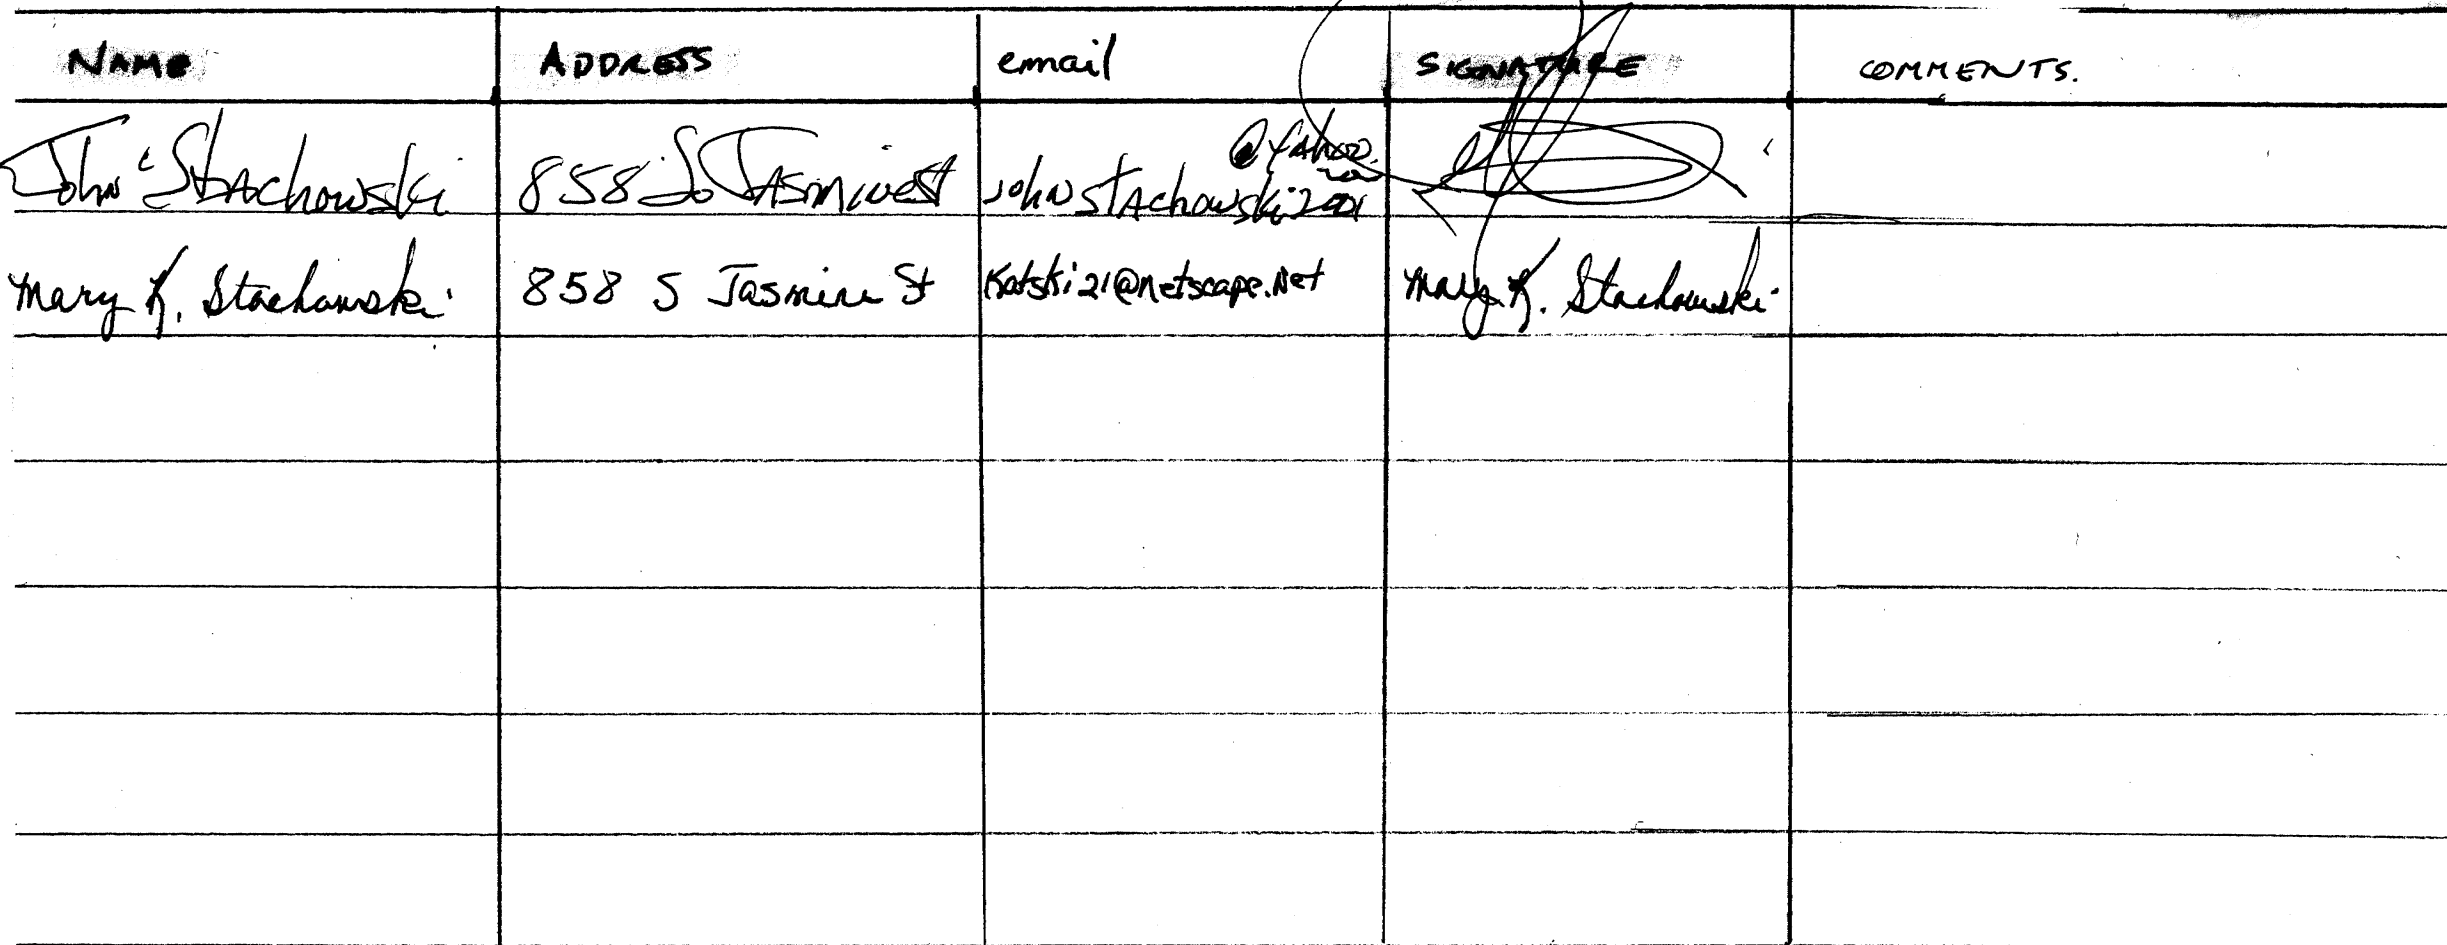 NAME ADDRESS email SIGNATURE COMMENTS.
John Stachowski 858 So Jasmine St johnstachowski2001 @yahoo.com
Mary K. Stachowski 858 S Jasmine St Katski21@netscape.Net Mary K. Stachowski